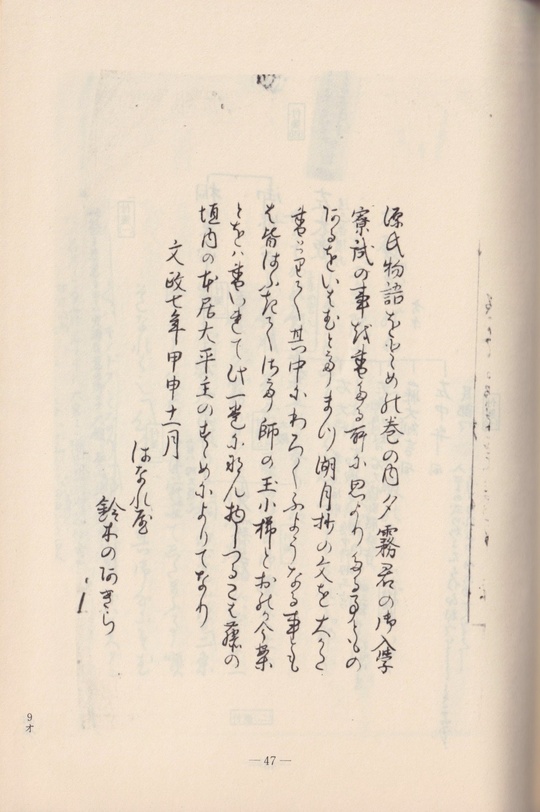 源氏物語をとめの巻の内夕霧君の御入学
寮試の事を書たる所に思よりたる事ともの
あるをいはむとてまつ湖月抄の文を大かた
書て其中にわろくふようなる事とも
は皆はふきて師の玉小櫛とおのか今案
とをは書いれて此一巻になん物しつるこは藤の
垣内の本居大平主のすゝめによりてなり
文政七年甲申十二月
はなれ屋
鈴木のあきら
9オ
—47—